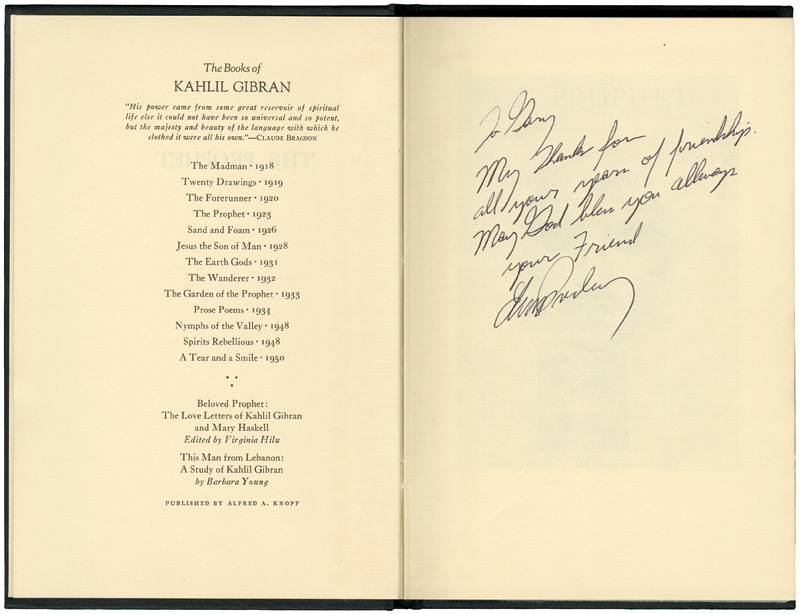 The Books of
KAHLIL GIBRAN
"His power came from some great reservoir of spiritual
life else it could not have been so universal and so potent,
but the majesty and beauty of the language with which he
clothed it were all his own."—CLAUDE BRAGDON
The Madman · 1918
Twenty Drawings · 1919
The Forerunner · 1920
The Prophet · 1923
Sand and Foam · 1926
Jesus the Son of Man · 1928
The Earth Gods · 1931
The Wanderer · 1932
The Garden of the Prophet · 1933
Prose Poems · 1934
Nymphs of the Valley · 1948
Spirits Rebellious · 1948
A Tear and a Smile · 1950
Beloved Prophet:
The Love Letters of Kahlil Gibran
and Mary Haskell
Edited by Virginia Hilu
This Man from Lebanon:
A Study of Kahlil Gibran
by Barbara Young
PUBLISHED BY ALFRED A. KNOPF
To Gary
My thanks for
all your years of friendship.
May God bless you allways
your Friend
Elvis Presley